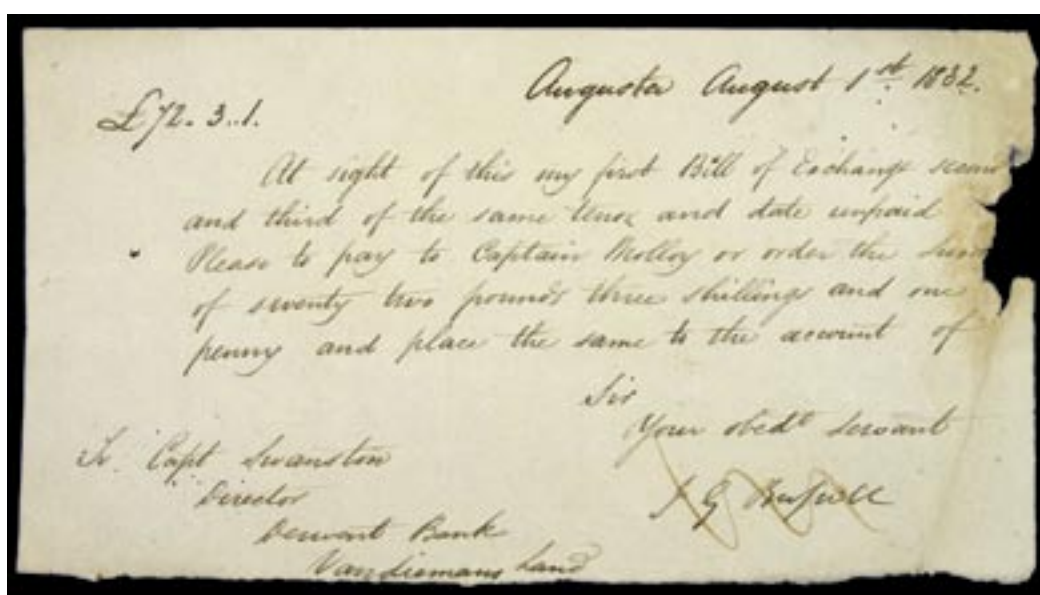 Augusta August 1st. 1832.
£72. 3..1.
At sight of this my first Bill of Exchange secon
and third of the same tenor and date unpaid
Please to pay to Captain Molloy or order the sum
of seventy two pounds three shillings and one
penny and place the same to the account of
Sir
Your obedt Servant
J G Bussell
To Capt Swanston
Director
Derwent Bank
Vandiemans Land